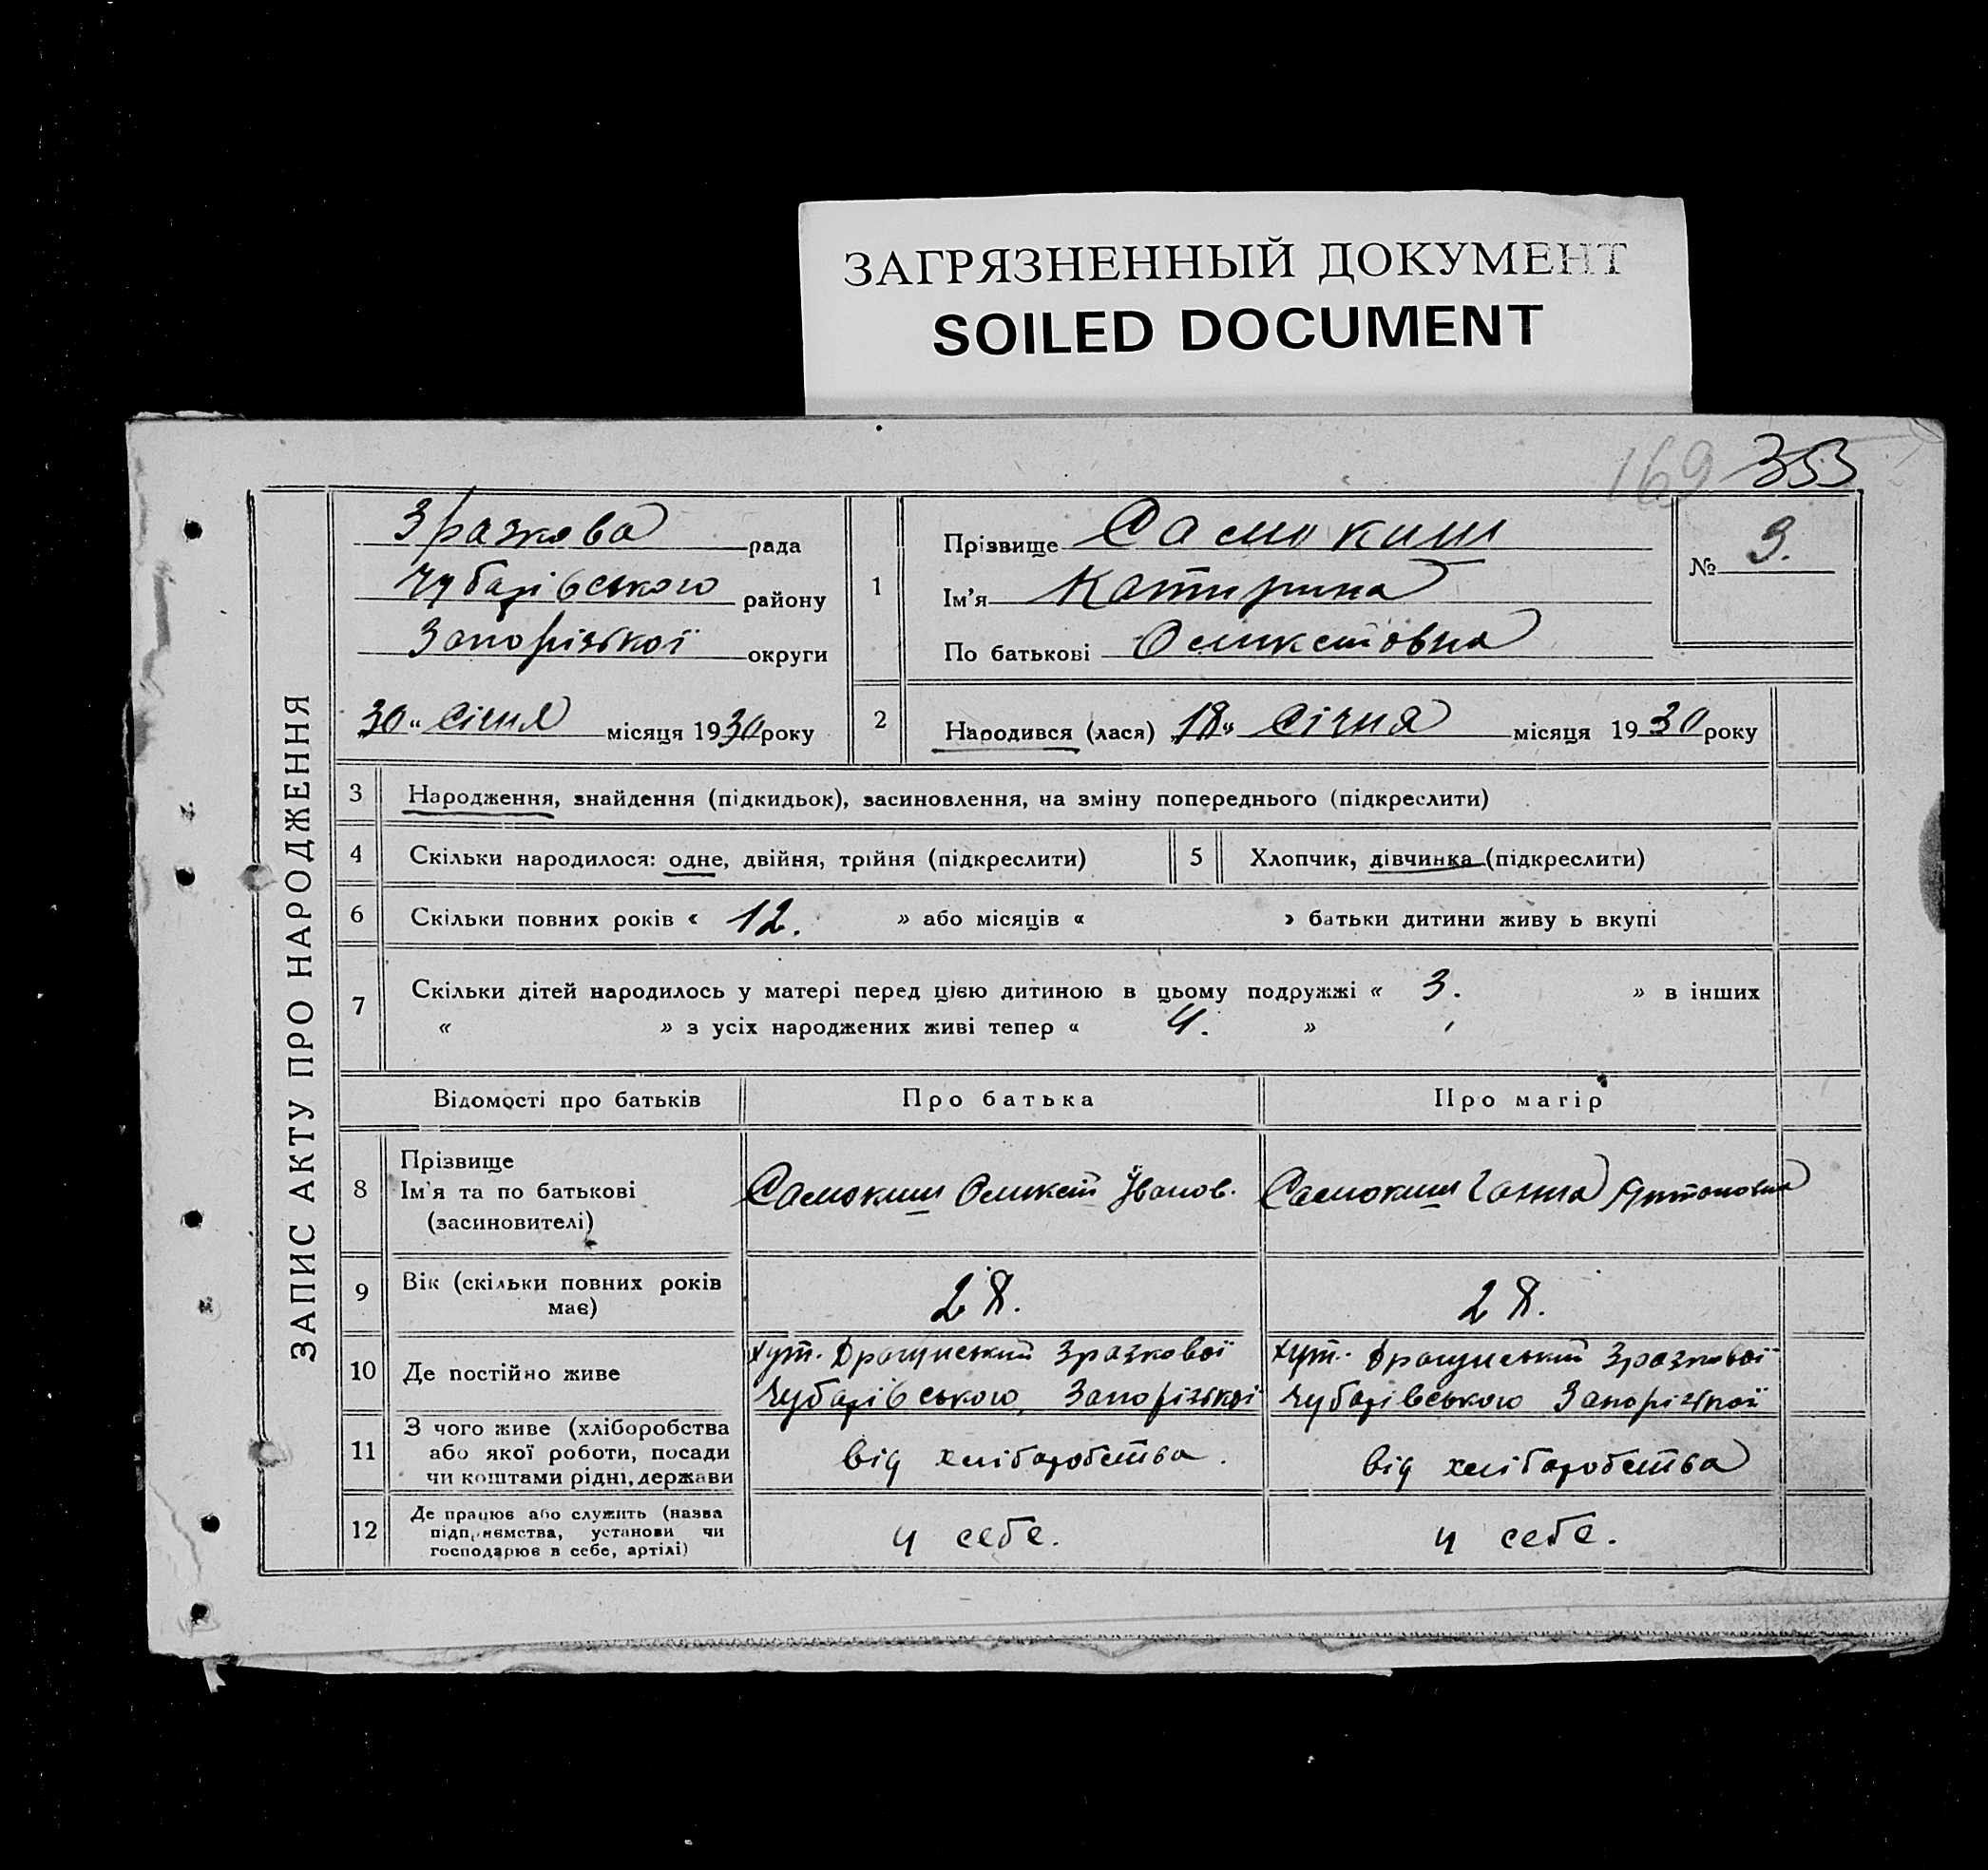 ЗАГРЯЗНЕННЫЙ ДОКУМЕНТ
SOILED DOCUMENT
169 353
ЗАПИС АКТУ ПРО НАРОДЖЕННЯ
Зразкова рада
Чубарівського району
Запорізької округи
30 " Січня місяця 1930 року
1
Прізвище Самокиш
Ім'я Катирина
По батькові Оликстовна
№ 3.
2 Народився (лася) 18 " Січня місяця 1930 року
3 Народження, знайдення (підкидьок), засиновлення, на зміну попереднього (підкреслити)
4 Скільки народилося: одне, двійня, трійня (підкреслити) 5 Хлопчик, дівчинка (підкреслити)
6 Скільки повних років « 12. » або місяців « » батьки дитини живу ь вкупі
7 Скільки дітей народилось у матері перед цією дитиною в цьому подружжі « 3. » в інших
« » з усіх народжених живі тепер « 4. »
Відомості про батьків Про батька Про матір
8 Прізвище
Ім'я та по батькові
(засиновителі)
Самокиш Оликст Іванов. Самокиш Ганна Антоновна
9 Вік (скільки повних років
має)
28. 28.
10 Де постійно живе
хут. Драгунський Зразкової
Чубарівського, Запорізької
хут. Драгунський Зразкової
Чубарівського Запорізької
11 З чого живе (хліборобства
або якої роботи, посади
чи коштами рідні, держави
від хліборобства. від хліборобства
12 Де працює або служить (назва
підприємства, установи чи
господарює в себе, артілі)
у себе. у себе.